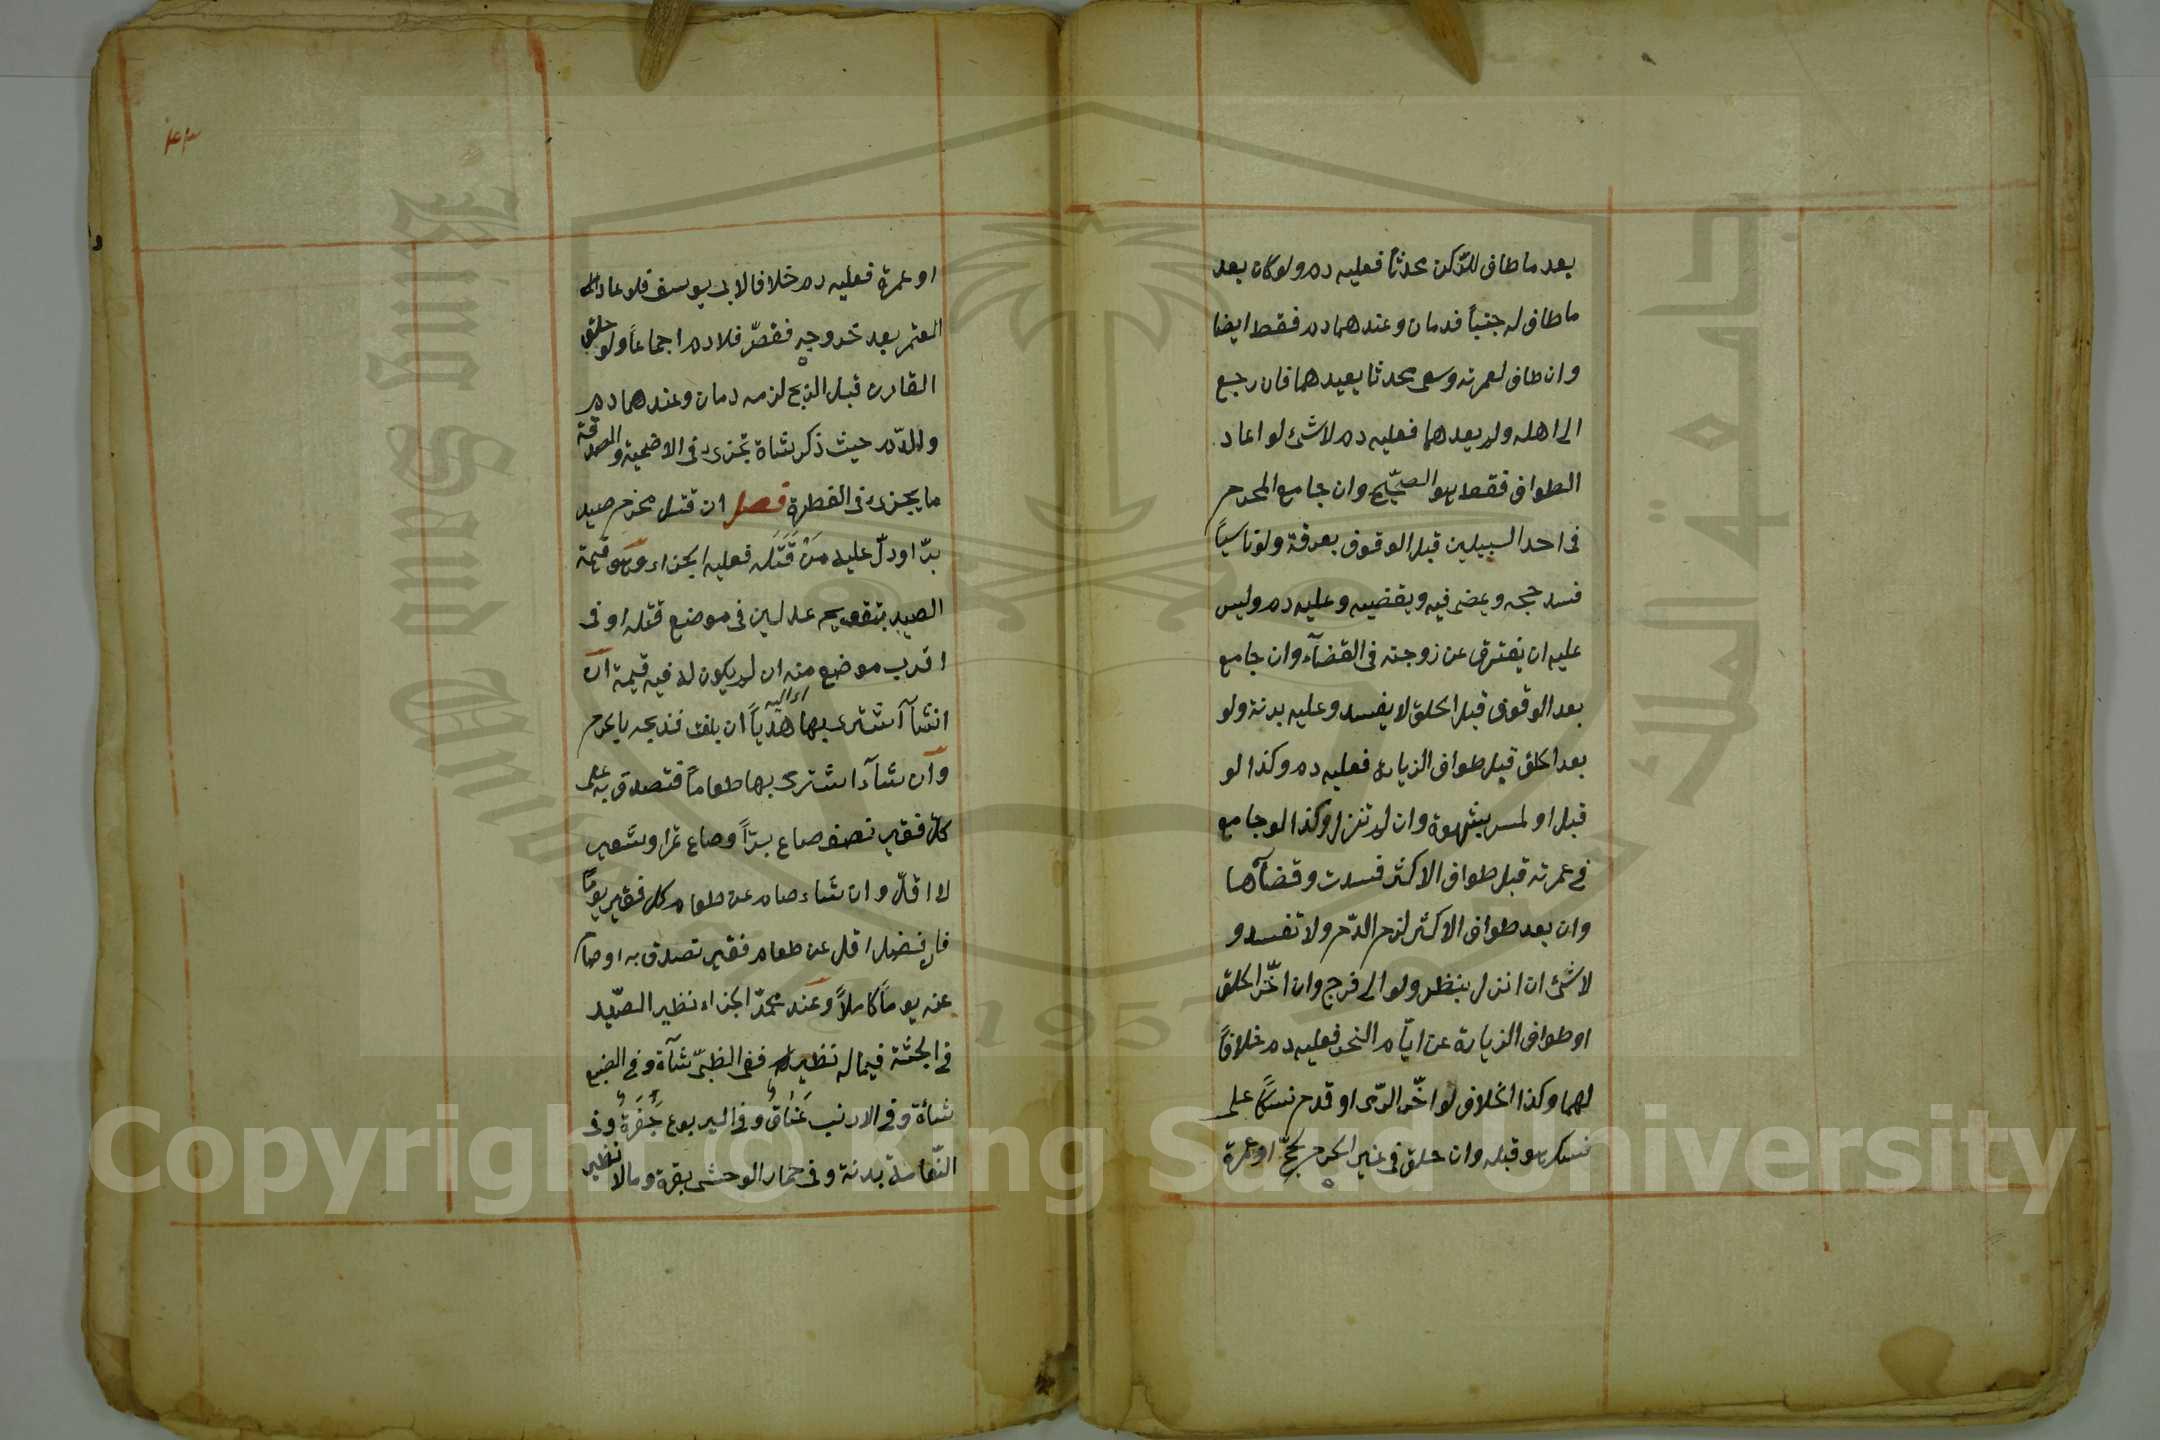 بعد ما طاف للركن محدثا فعليه دم ولو كان بعد
ما طاف له جنباً فدمان وعندهما دم فقط ايضا
وان طاف لعمرته وسعى محدثا يعيدهما فان رجع
الى اهله ولم يعدهما فعليه دم لا شئ لو اعاد
الطواف فقط هو الصحيح وان جامع المحرم
فى احد السبيلين قبل الوقوف بعرفة ولو ناسياً
فسد حجه ويمضى فيه ويقضيه وعليه دم وليس
عليه ان يفترق عن زوجته فى القضآء وان جامع
بعد الوقوف قبل الحلق لا يفسد وعليه بدنة ولو
بعد الحلق قبل طواف الزيارة فعليه دم وكذا لو
قبل او لمس بشهوة وان لم تنزل وكذا لو جامع
فى عمرته قبل طواف الاكثر فسدت وقضآها
وان بعد طواف الاكثر لزم الدّم ولا تفسد و
لا شئ ان انزل بنظر ولو الى فرج وان اخّر الحلق
او طواف الزيارة عن ايّام النحر فعليه دم خلافاً
لهما وكذا الخلاف لو اخّر الرّمى او قدم نسكاً على
نسك هو قبله وان حلق فى غير الحرم لحجّ او عمرة
او عمرة فعليه دم خلافا لابى يوسف فلو عاد الى
المعتمر بعد خروجه فقصّر فلا دم اجماعاً ولو حلق
القارن قبل الذبح لزمه دمان وعندهما دم
والدّم حيث ذكر شاة تجزى فى الاضحية والصدقة
ما يجزى فى الفطرة فصل ان قتل محرم صيد
برّ او دلّ عليه مَنْ قَتَلَه فعليه الجزاء وهو قيمة
الصيد بتقويم عدلين فى موضع قتله او فى
اقرب موضع منه ان لم يكون له فيه قيمة ان
انشآ اشترى بها هدياً ان بلغت فذبحه بالحرم
وان شآء اشترى بها طعاماً فتصدق به على
كل فقير نصف صاع برّاً وصاع تمرا وشعير
لا اقلّ وان شاء صام عن طعام كل فقير يوماً
فان فضل اقل عن طعام فقير تصدق به او صام
عنه يوماً كاملاً وعند محمّد الجزاء نظير الصّيد
فى الجثة فيما له نظير ففى الظبى شآة وفى الضبع
شاة وفى الارنب عَنَاقٌ وفى اليربوع جَفَرةٌ وفى
النّعامة بدنة وفى حمار الوحشى بقرة وما لا نظير
Copyright © King Saud University
King Saud University
جامعة الملك سعود
1957